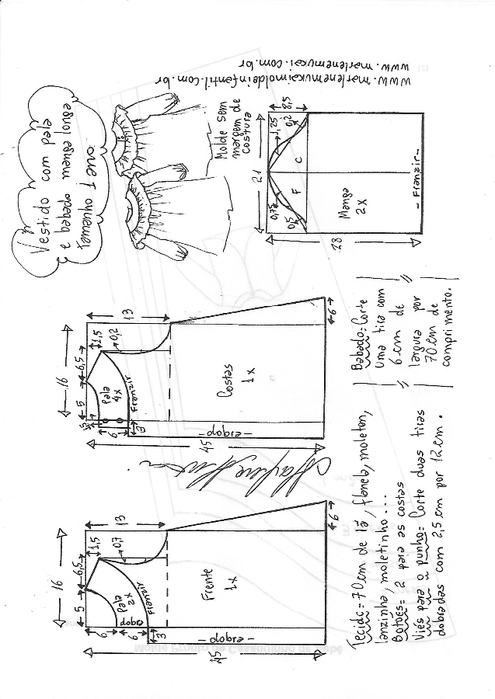 Vestido com pala
e babado, manga longa
tamanho 1 ano
Molde sem
margem de
costura
www.marlenemukaimoldeinfantil.com.br
www.marlenemukai.com.br
16
5
6,5
1,5
13
0,7
Pala
2x
Franzir
dobra
6
6
3
Frente
1x
- dobra -
45
6
16
5
6,5
1,5
13
0,2
Pala
4x
Franzir
6
3
Costas
1x
- dobra -
45
6
21
8,5
0,75
0,5
1,25
0,2
F
C
Manga
2x
- Franzir -
28
Tecido = 70 cm de lã, flanela, moleton,
lanzinha, moletinho...
Botões = 2 para as costas
Viés para o punho = Corte duas tiras
dobradas com 2,5 cm por 12 cm.
Babado: Corte
uma tira com
6 cm de
largura por
70 cm de
comprimento.